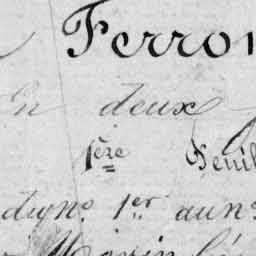 Ferron
En deux
1ère Feuil
dign° 1er au n°